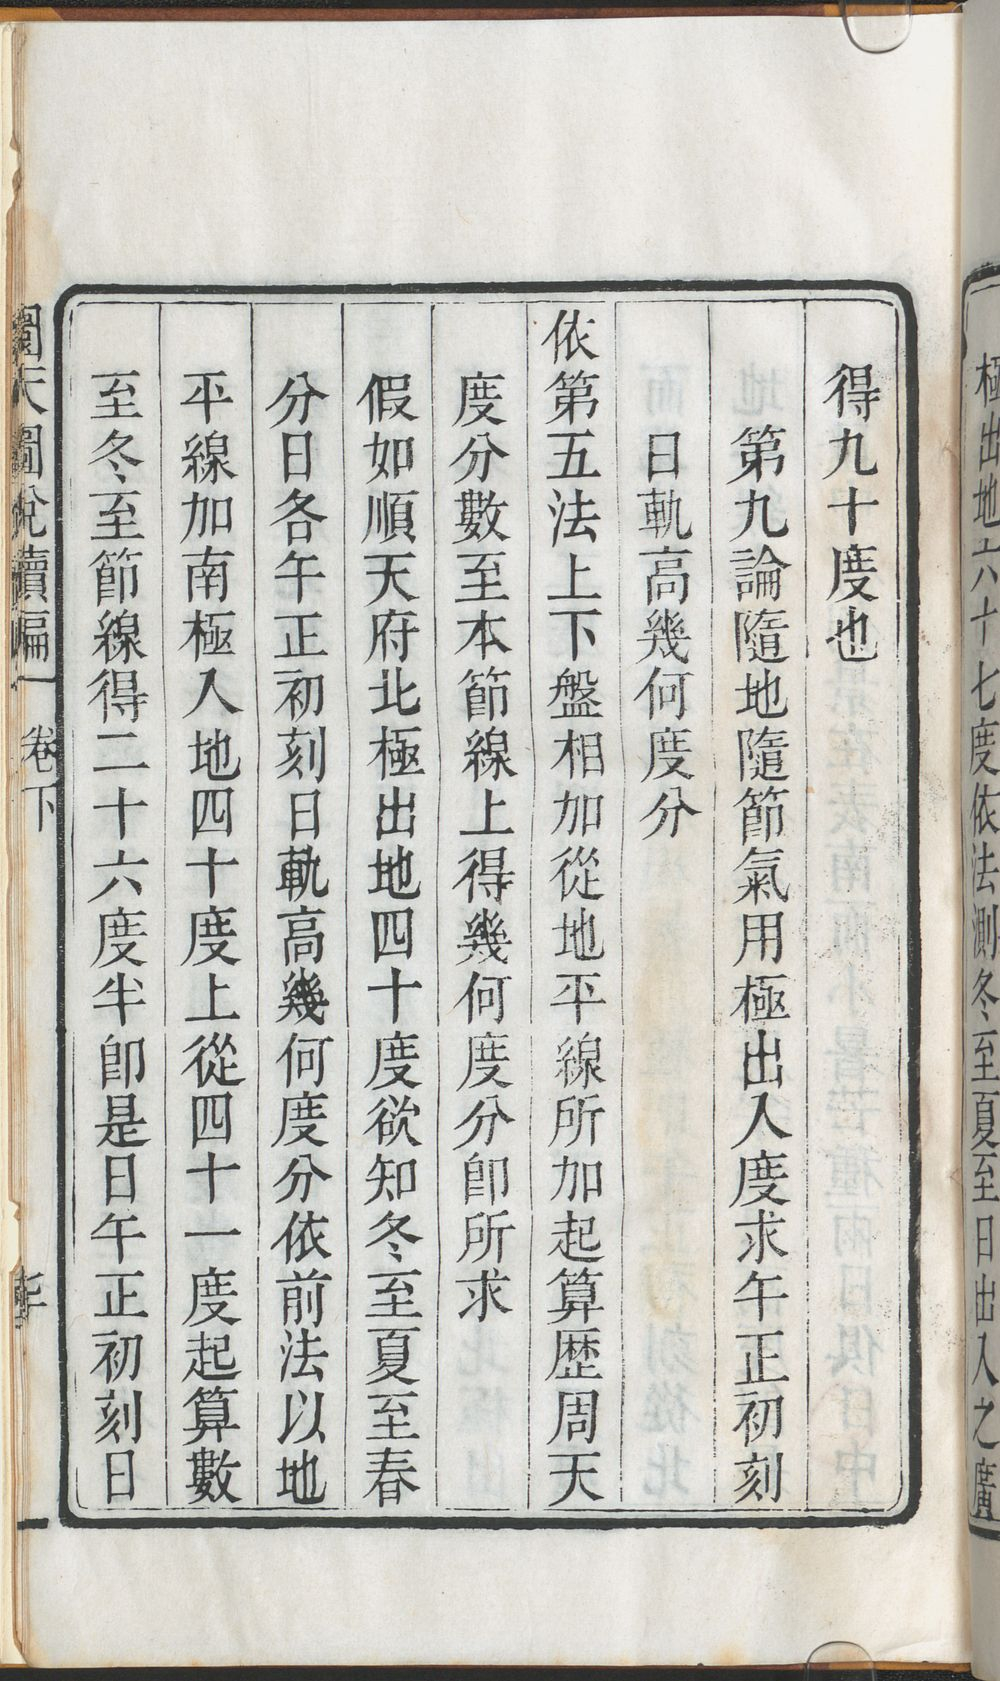 極出地六十七度依法測冬至夏至日出入之廣
得九十度也
第九論隨地隨節氣用極出入度求午正初刻
日軌高幾何度分
依第五法上下盤相加從地平線所加起算歷周天
度分數至本節線上得幾何度分卽所求
假如順天府北極出地四十度欲知冬至夏至春
分日各午正初刻日軌高幾何度分依前法以地
平線加南極入地四十度上從四十一度起算數
至冬至節線得二十六度半卽是日午正初刻日
圜天圖說續編
卷下